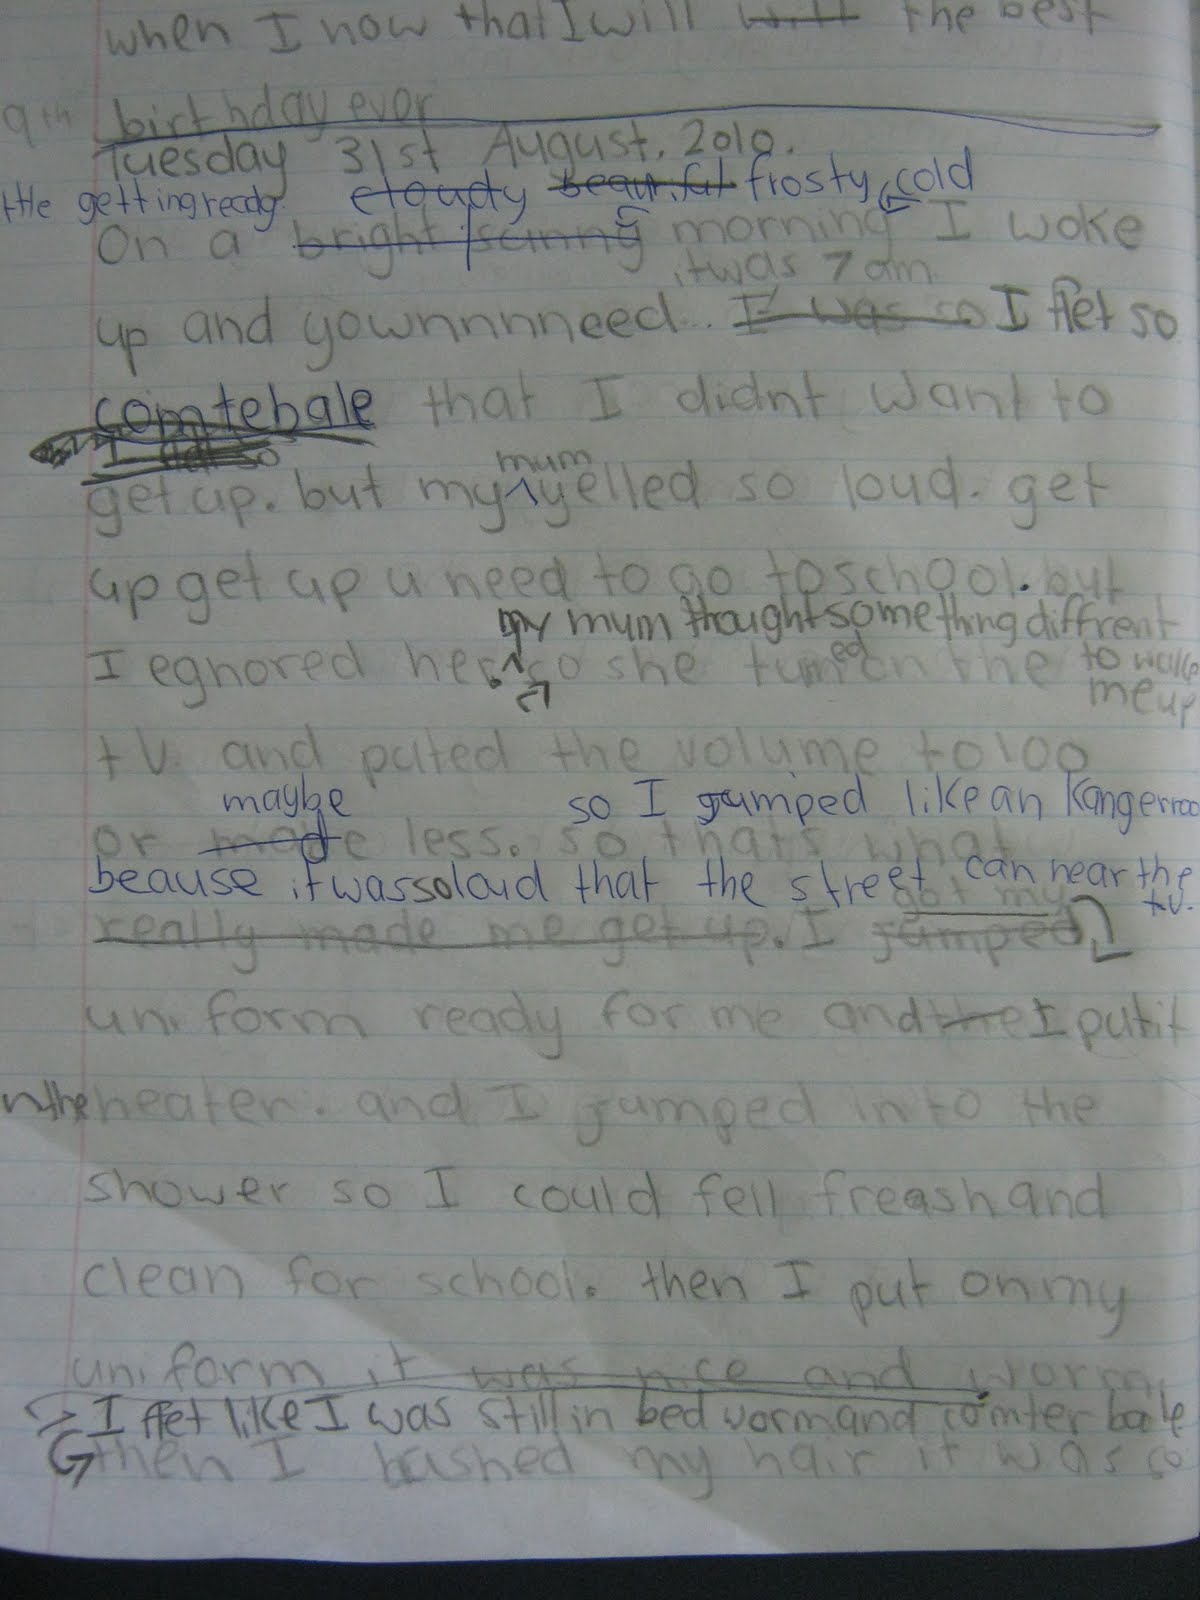 when I now that I will will the best
9th birthday ever
Tuesday 31st August. 2010.
ttle getting ready cloudy beautiful frosty, cold
On a bright sunny morning I woke
it was 7 am
up and yownnnneed... I was so I flet so
comtebale that I didnt want to
I so
mum
get up. but my yelled so loud. get
up get up u need to go to school. but
my mum thought something diffrent
I egnored her. so she turned on the to wake
me up
tv. and puted the volume to 100
maybe so I jumped like an kangerroo
or made less. so thats what
beause it was so loud that the street can hear the
got my tv.
really made me get up. I jumped
uniform ready for me and the I put it
n the heater. and I jumped into the
shower so I could fell freash and
clean for school. then I put on my
uniform it was nice and worm
I flet like I was still in bed worm and comterbale
then I bushed my hair it was so